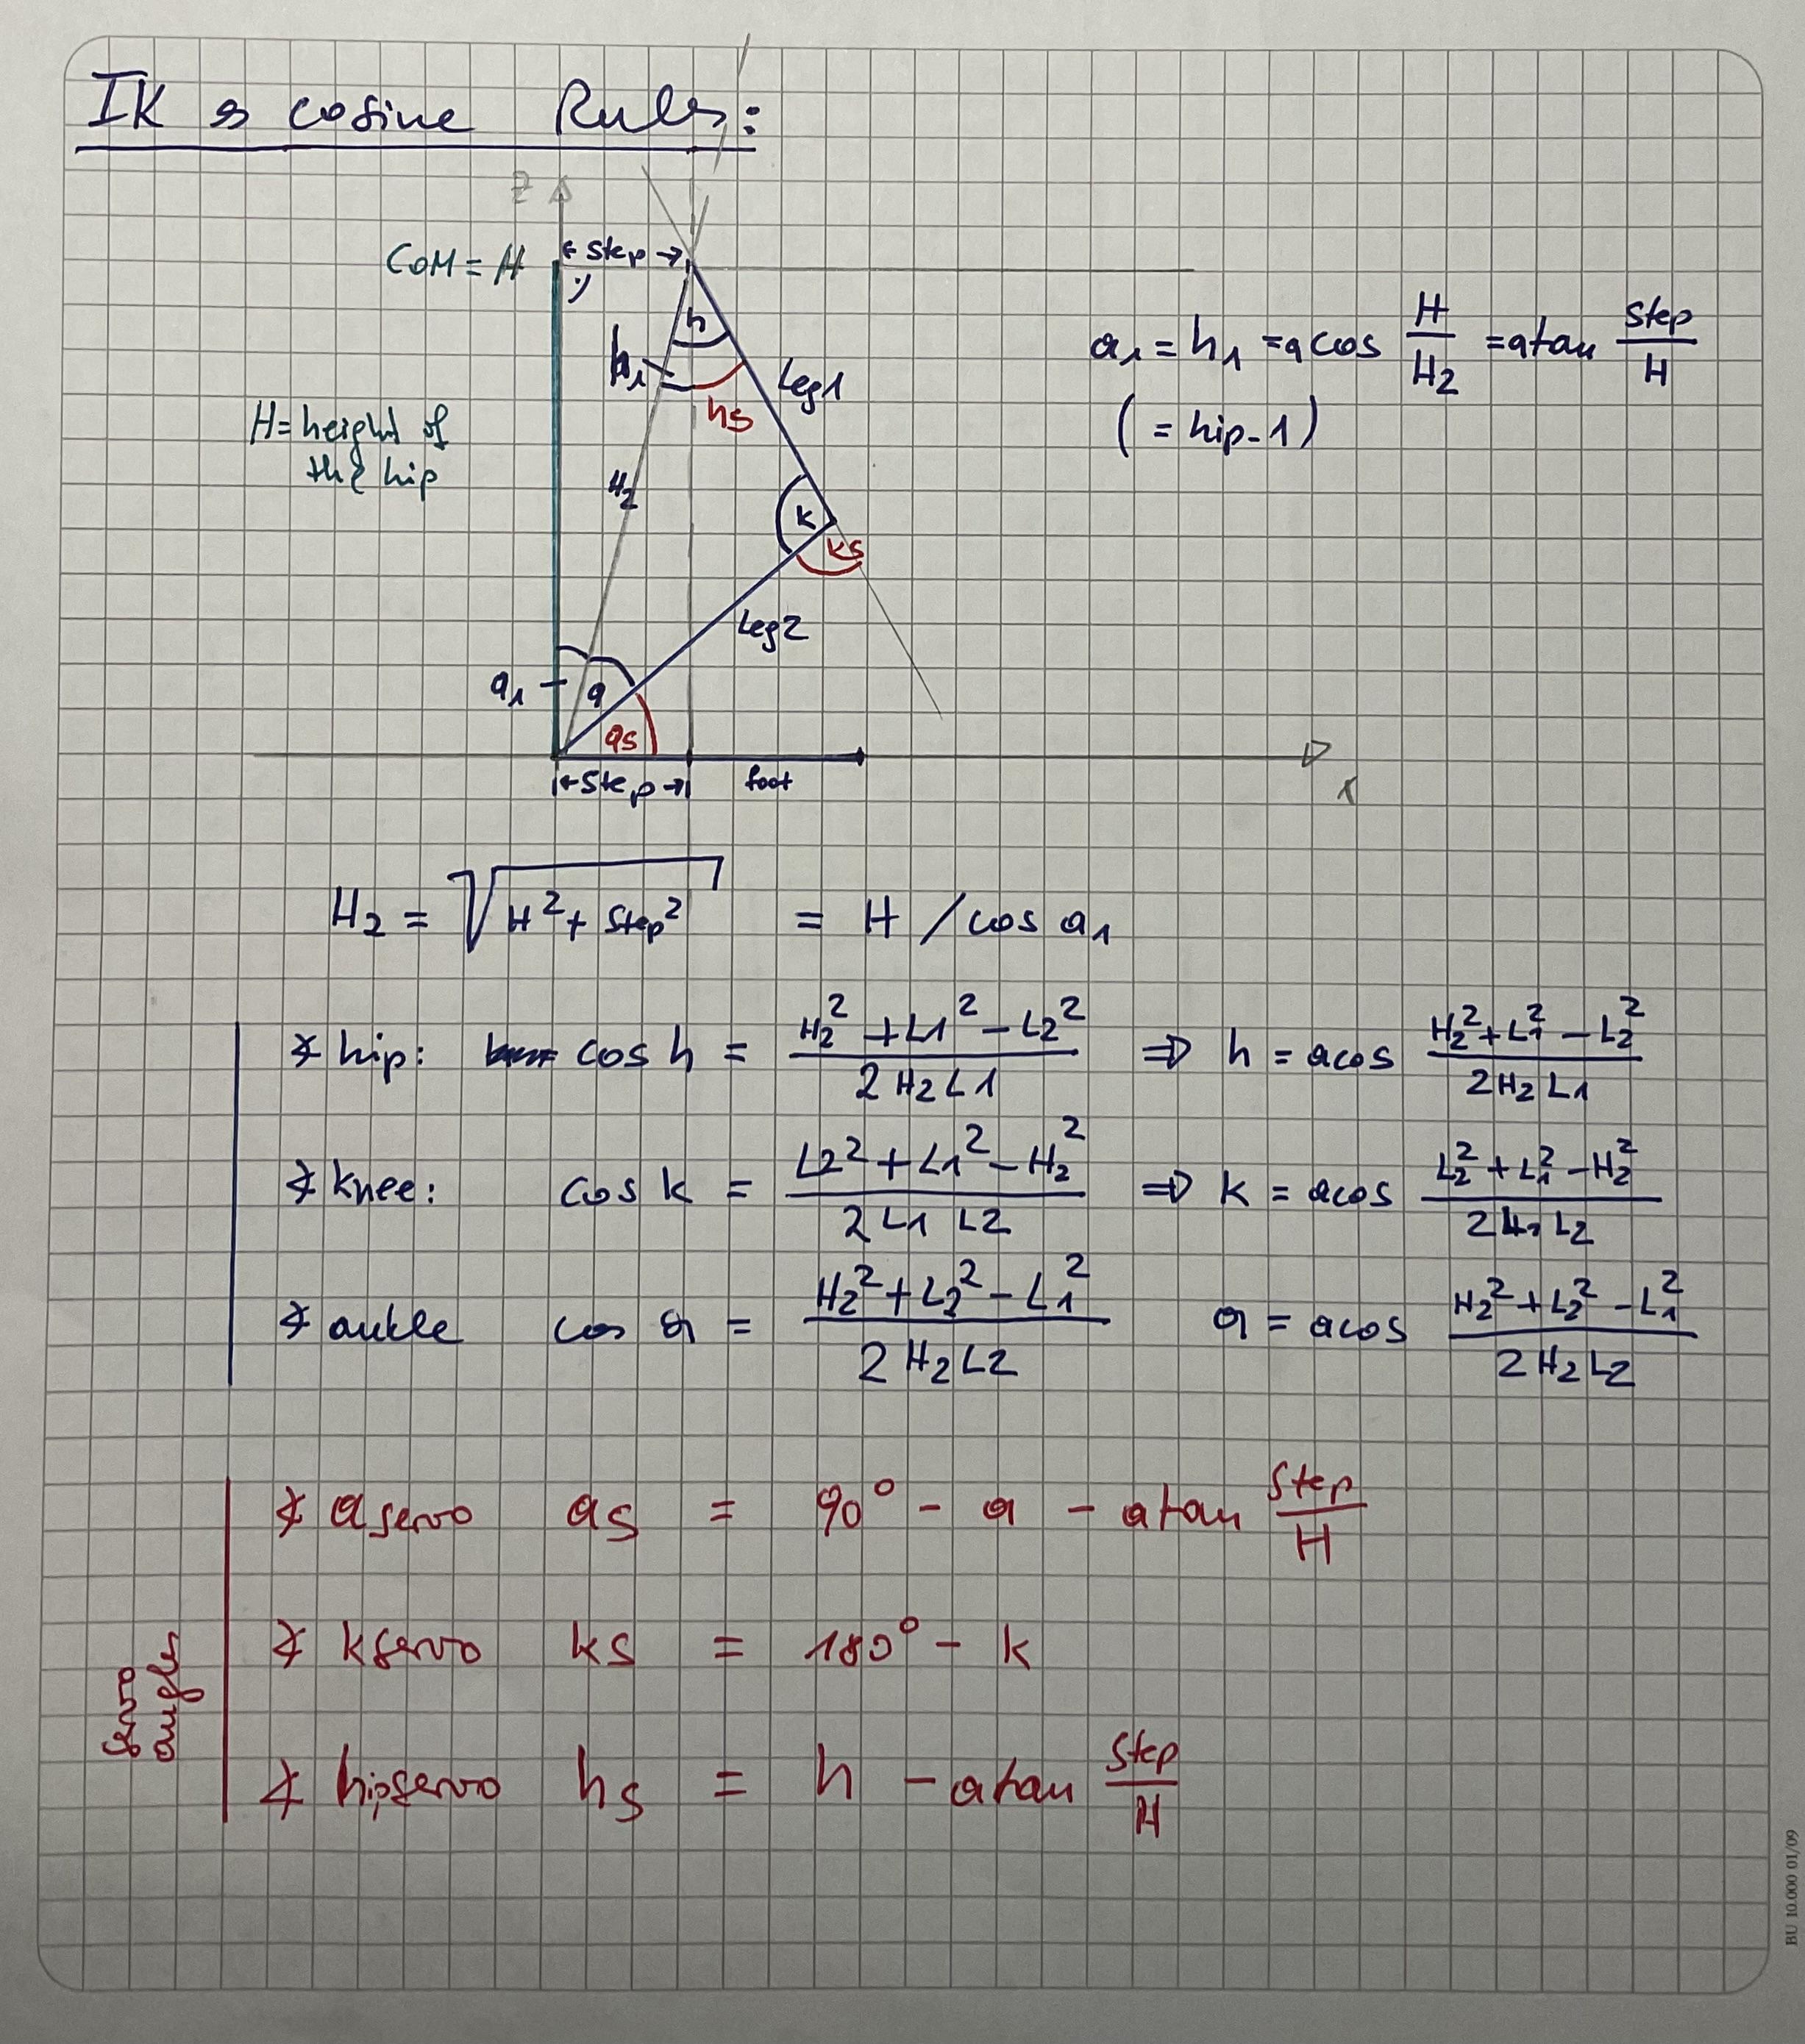 IK & cosine Rules:
Z
CoM = H
← Step →
h
h₁
hs
Leg1
H = height of
the hip
H₂
k
ks
Leg2
a₁
a
as
← Step →
foot
x
a₁ = h₁ = acos H/H₂ = atan Step/H
( = hip-1 )
H₂ = √(H² + Step²) = H / cos a₁
∢ hip: cos h = (H₂² + L1² - L2²) / (2 H₂ L1) ⇒ h = acos (H₂² + L1² - L2²) / (2 H₂ L1)
∢ knee: cos k = (L2² + L1² - H₂²) / (2 L1 L2) ⇒ k = acos (L2² + L1² - H₂²) / (2 L1 L2)
∢ ankle cos a = (H₂² + L2² - L1²) / (2 H₂ L2) a = acos (H₂² + L2² - L1²) / (2 H₂ L2)
servo
angles
∢ aservo as = 90° - a - atan Step/H
∢ kservo ks = 180° - k
∢ hipservo hs = h - atan Step/H
BU 10.000 01/09